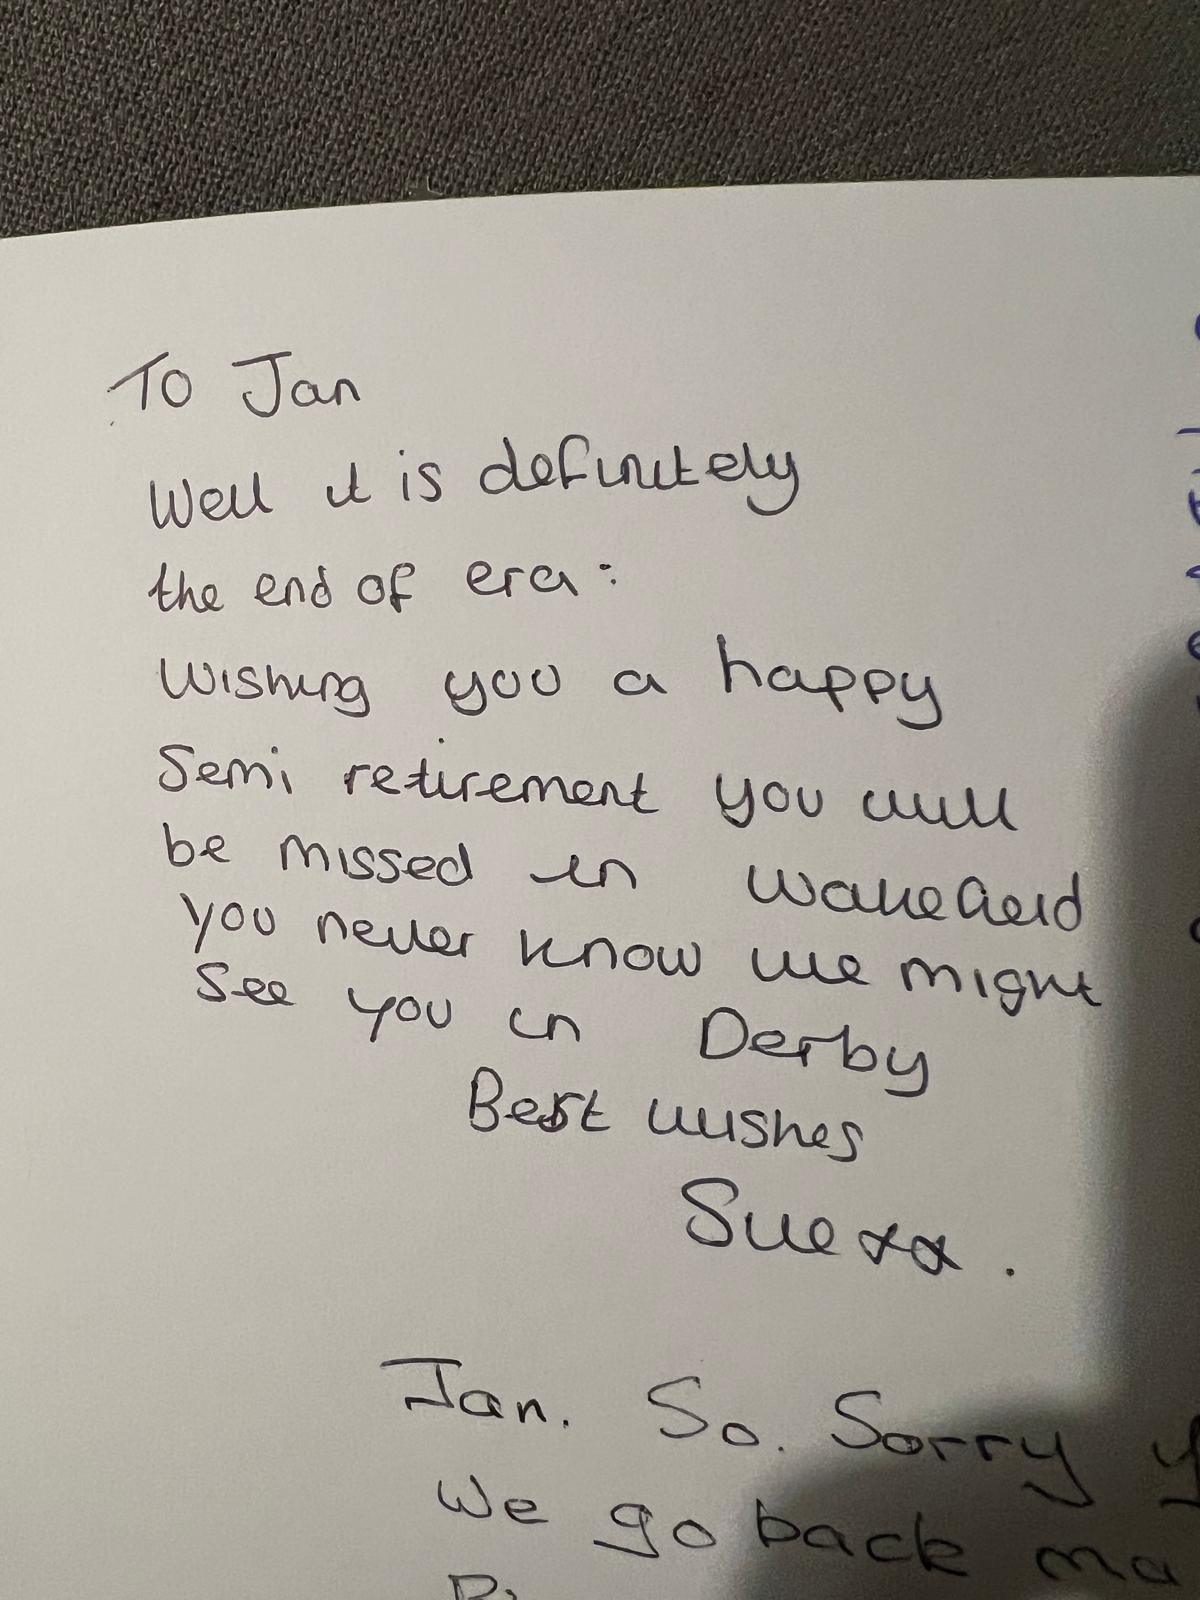 To Jan
Well it is definitely
the end of era:
Wishing you a happy
Semi retirement you will
be missed in Wakefield
you never know we might
see you in Derby
Best wishes
Sue xx.
Jan. So. Sorry
We go back